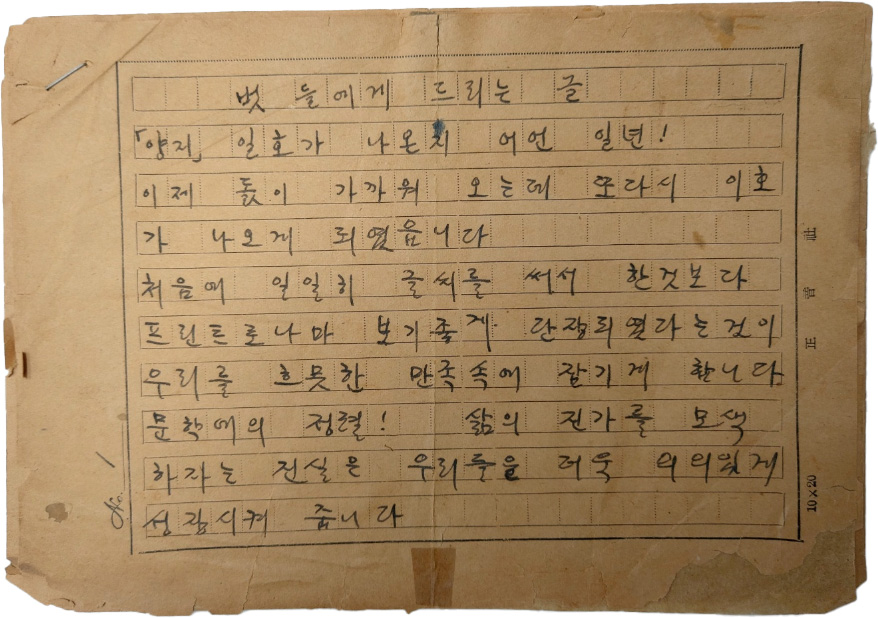 벗 들에게 드리는 글
「양지」 일호가 나온지 어언 일년!
이제 돐이 가까워 오는데 또다시 이호
가 나오게 되였읍니다
처음에 일일히 글씨를 써서 한것보다
프린트로나마 보기좋게 단장되였다는것이
우리를 흐뭇한 만족속에 잠기게 합니다
문학에의 정렬! 삶의 진가를 모색
하자는 진실은 우리들을 더욱 의의있게
성장시켜 줍니다
No. 1
正音社
10×20